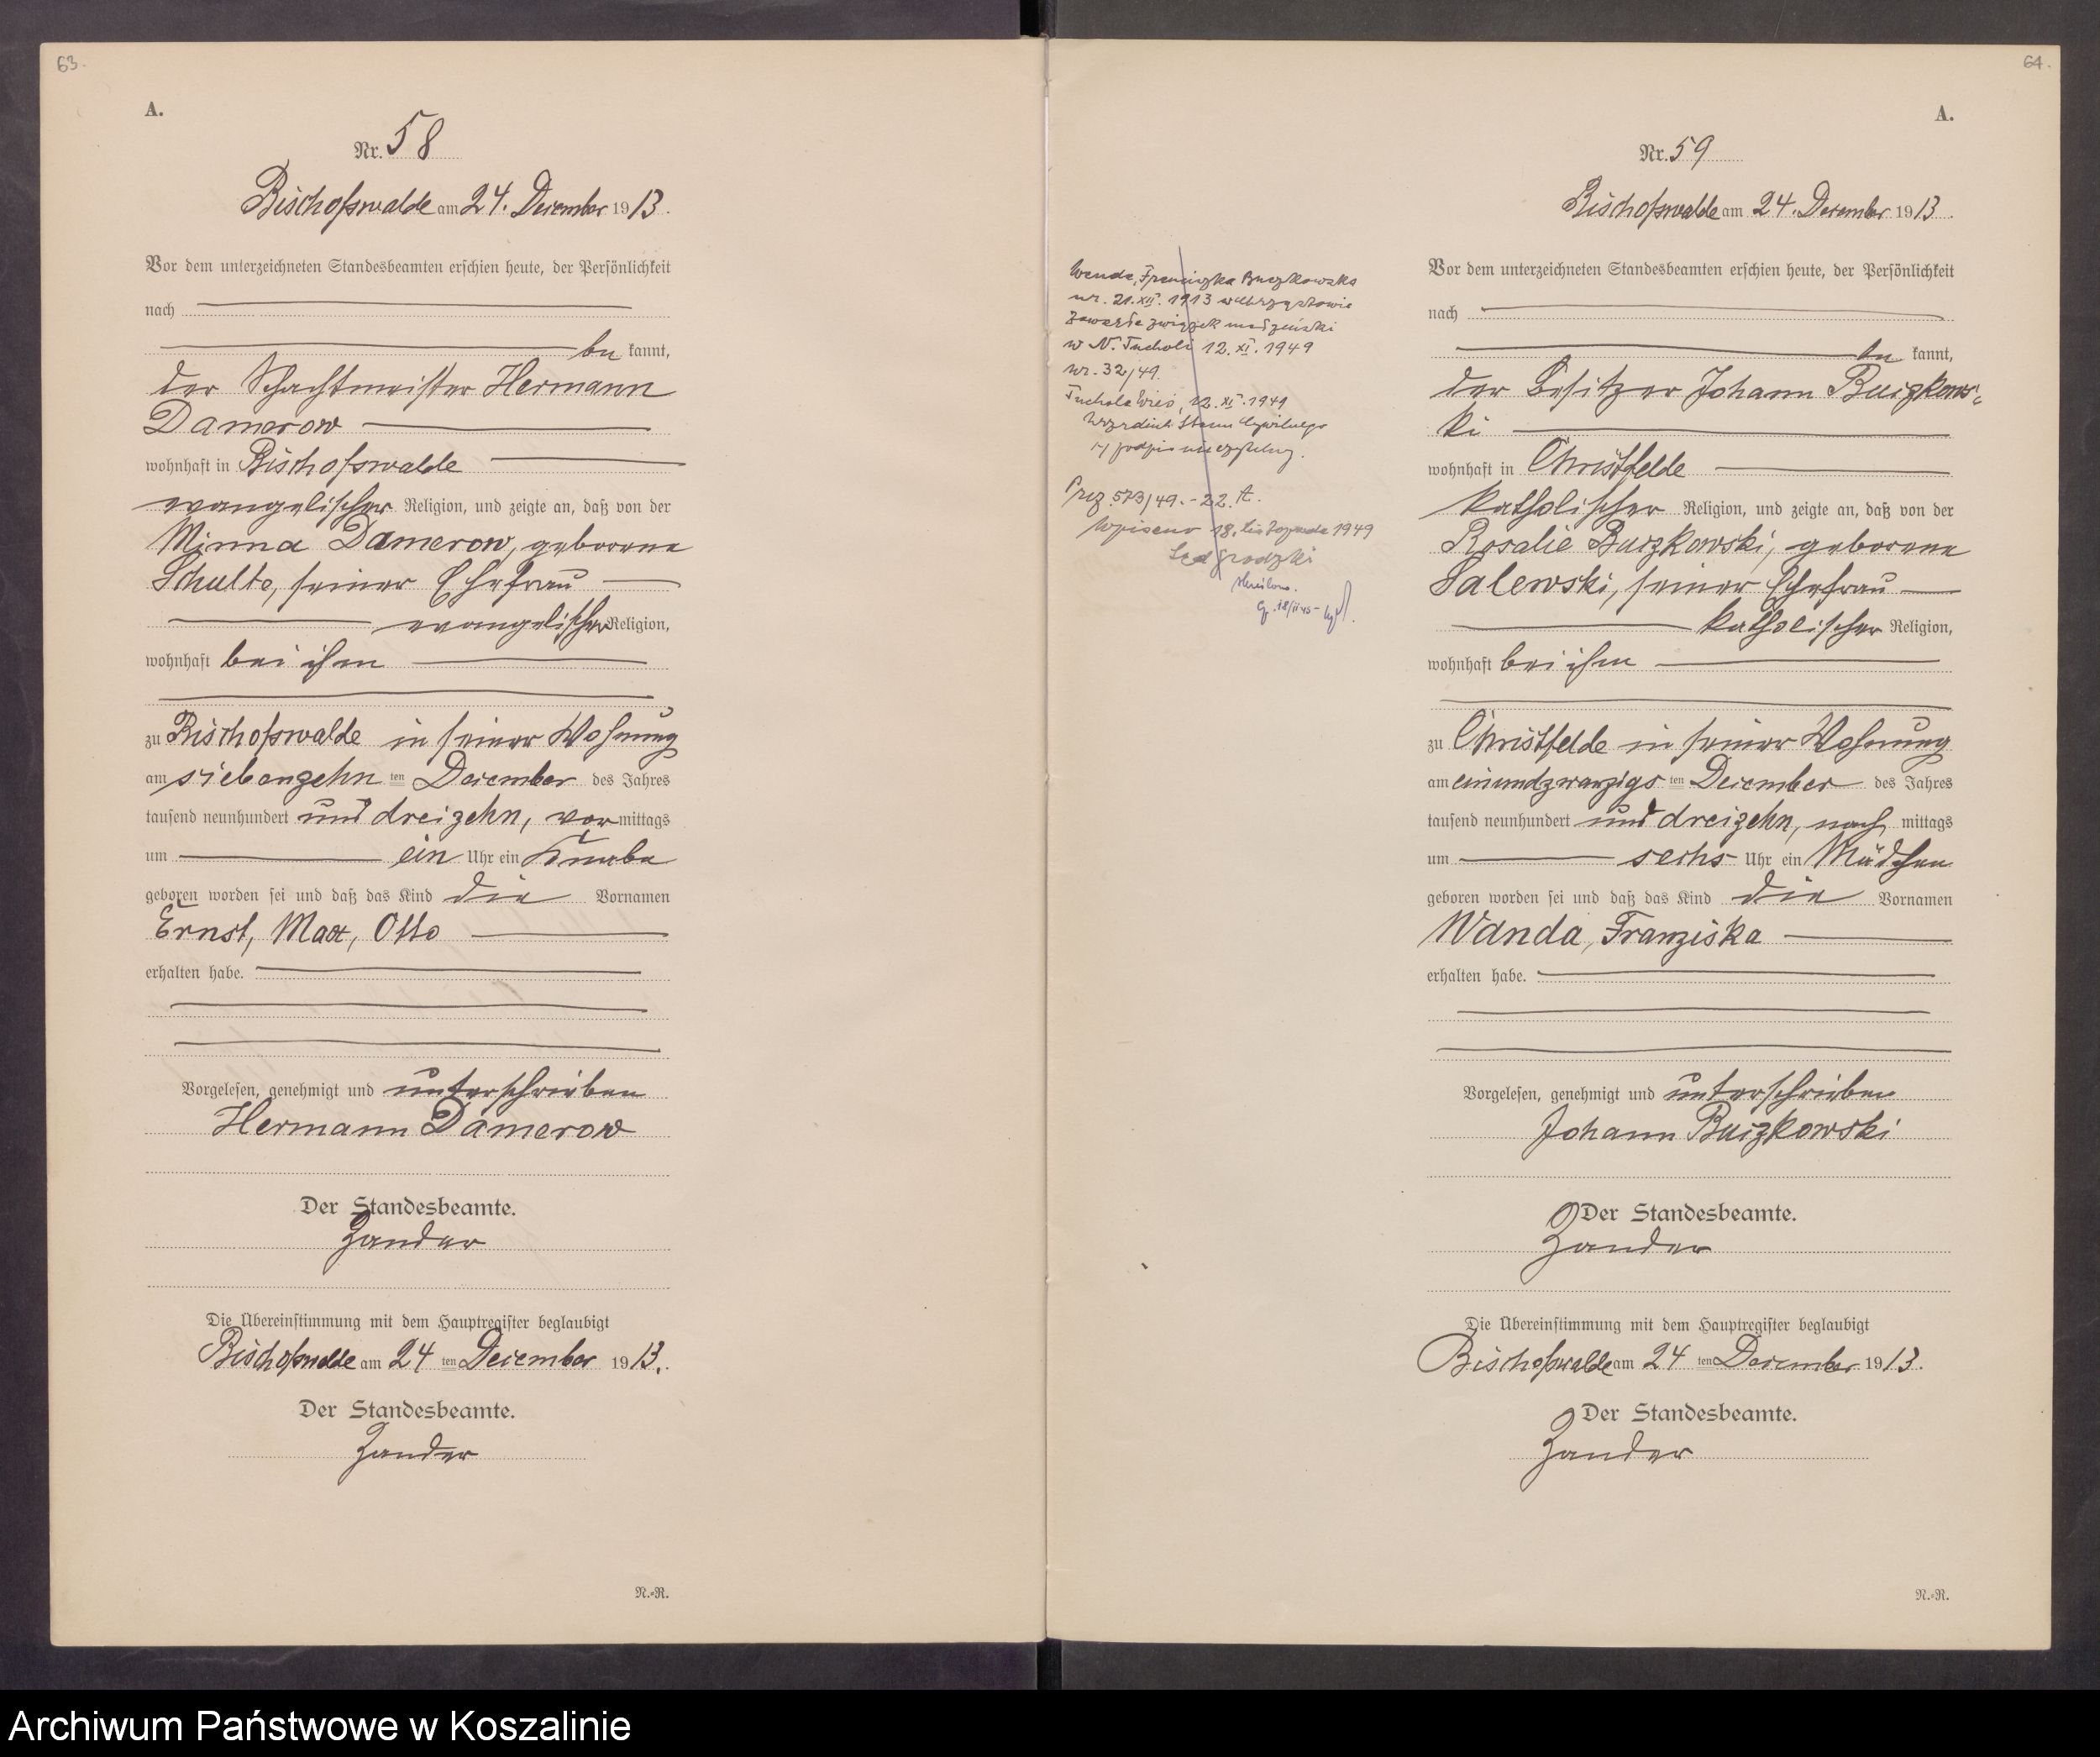 63.
A.
Nr. 58
Bischofswalde am 24. Dezember 1913.
Vor dem unterzeichneten Standesbeamten erschien heute, der Persönlichkeit
nach
be kannt,
der Schachtmeister Hermann
Damerow
wohnhaft in Bischofswalde
evangelischer Religion, und zeigte an, daß von der
Minna Damerow, geborene
Schulte, seiner Ehefrau
evangelischer Religion,
wohnhaft bei ihm
zu Bischofswalde in seiner Wohnung
am siebenzehn ten Dezember des Jahres
tausend neunhundert und dreizehn, vor mittags
um ein Uhr ein Knabe
geboren worden sei und daß das Kind die Vornamen
Ernst, Max, Otto
erhalten habe.
Vorgelesen, genehmigt und unterschrieben
Hermann Damerow
Der Standesbeamte.
Zander
Die Übereinstimmung mit dem Hauptregister beglaubigt
Bischofswalde am 24 ten Dezember 1913.
Der Standesbeamte.
Zander
N.-R.
64.
A.
Nr. 59
Bischofswalde am 24. Dezember 1913.
Wanda, Franciszka Buczkowska
ur. 21.XII. 1913 w
zawarła związek małżeński
w N. Tucholi 12. XI. 1949
nr. 32/49.
Tuchola Wieś, 12. XI. 1949
Urzędnik Stanu Cywilnego
(-) podpis nieczytelny.
Prez. 573/49. - 22. A.
Wpisano 18. listopada 1949
Sąd Grodzki
Vor dem unterzeichneten Standesbeamten erschien heute, der Persönlichkeit
nach
be kannt,
der Besitzer Johann Buczkows-
ki
wohnhaft in Christfelde
katholischer Religion, und zeigte an, daß von der
Rosalie Buczkowski, geborene
Salewski, seiner Ehefrau
katholischer Religion,
wohnhaft bei ihm
zu Christfelde in seiner Wohnung
am einundzwanzigs ten Dezember des Jahres
tausend neunhundert und dreizehn, nach mittags
um sechs Uhr ein Mädchen
geboren worden sei und daß das Kind die Vornamen
Wanda, Franziska
erhalten habe.
Vorgelesen, genehmigt und unterschrieben
Johann Buczkowski
Der Standesbeamte.
Zander
Die Übereinstimmung mit dem Hauptregister beglaubigt
Bischofswalde am 24 ten Dezember 1913.
Der Standesbeamte.
Zander
N.-R.
Archiwum Państwowe w Koszalinie